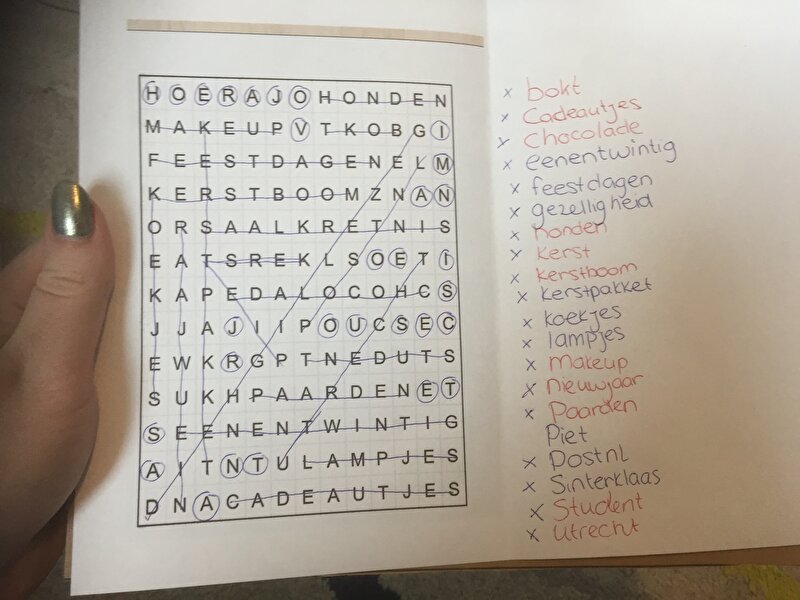 H O E R A J O H O N D E N
M A K E U P V T K O B G I
F E E S T D A G E N E L M
K E R S T B O O M Z N A N
O R S A A L K R E T N I S
E A T S R E K L S O E T I
K A P E D A L O C O H C S
J J A J I I P O U C S E C
E W K R G P T N E D U T S
S U K H P A A R D E N E T
S E E N E N T W I N T I G
A I T N T U L A M P J E S
D N A C A D E A U T J E S
x bokt
x Cadeautjes
x Chocolade
x eenentwintig
x feestdagen
x gezelligheid
x honden
x Kerst
x kerstboom
x kerstpakket
x koekjes
x lampjes
x Makeup
x nieuwjaar
x Paarden
Piet
x Postnl
x Sinterklaas
x Student
x Utrecht